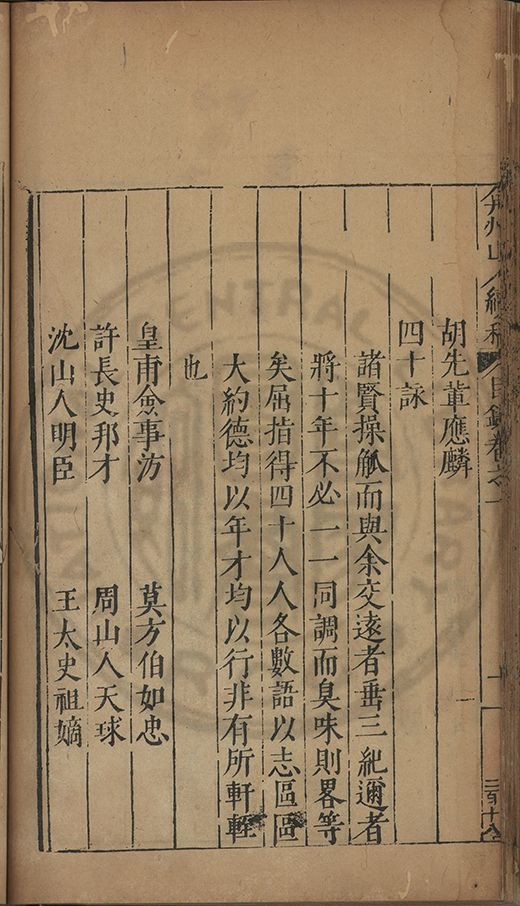 弇州山人續稿 目錄卷之一
胡先軰應麟
四十詠
諸賢操觚而與余交遠者垂三紀邇者
將十年不必一一同調而臭味則畧等
矣屈指得四十人人各數語以志區區
大約德均以年才均以行非有所軒輊
也
皇甫僉事汸　莫方伯如忠
許長史邦才　周山人天球
沈山人明臣　王太史祖嫡
CENTRAL